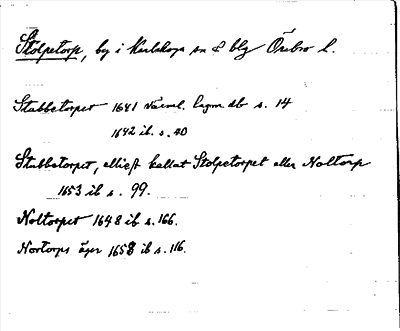 Stolpetorp, by i Karlskoga sn o blg Örebro l.
Stubbetorpet 1641 Värml. lagm db s. 14
1642 ib. s. 40
Stubbetorpet, elliest kallat Stolpetorpet eller Noltorp
1653 ib s. 99.
Noltorpet 1648 ib s. 166.
Nortorps äger 1658 ib s. 116.